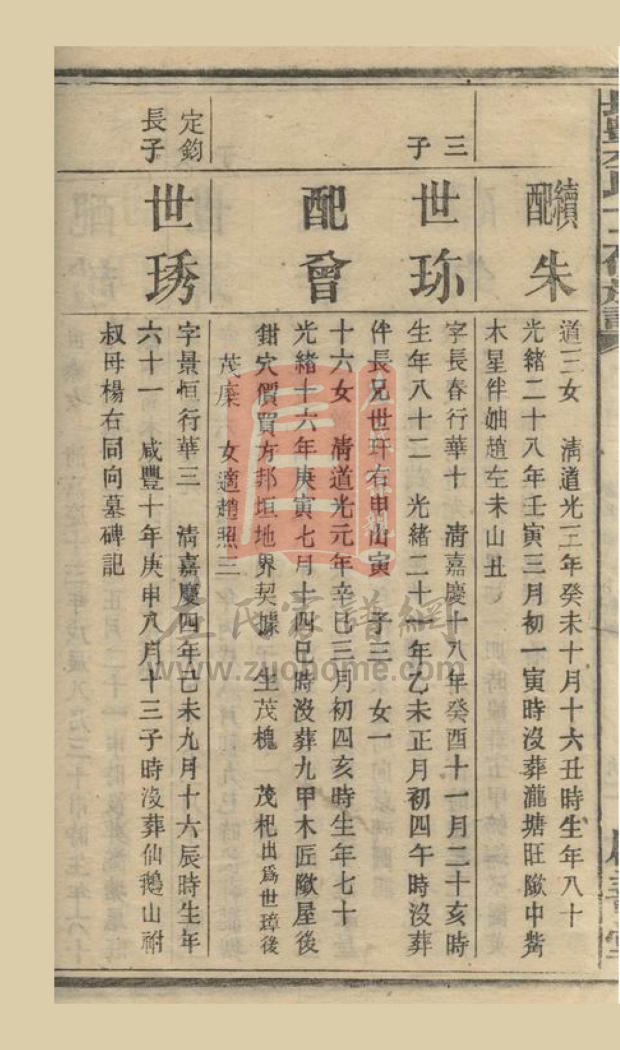 續配 朱
道三女 清道光三年癸未十月十六丑時生年八十
光緒二十八年壬寅三月初一寅時沒葬瀧塘旺歘中嘴
木星伴妯趙左未山丑
三子
世珎
字長春行華十 清嘉慶十八年癸酉十一月二十亥時
生年八十二 光緒二十一年乙未正月初四午時沒葬
伴長兄世玕右申山寅 子三 女一
配曾
十六女 清道光元年辛巳三月初四亥時生年七十
光緒十六年庚寅七月十四巳時沒葬九甲木匠歘屋後
鉗穴價買方邦垣地界契據 生茂槐 茂杞出爲世璋後
茂棠 女適趙照三
定鈞長子
世琇
字景恒行華三 清嘉慶四年己未九月十六辰時生年
六十一 咸豐十年庚申八月十三子時沒葬仙鵝山祔
叔母楊右同向墓碑記
左氏家譜網
www.zuohome.com